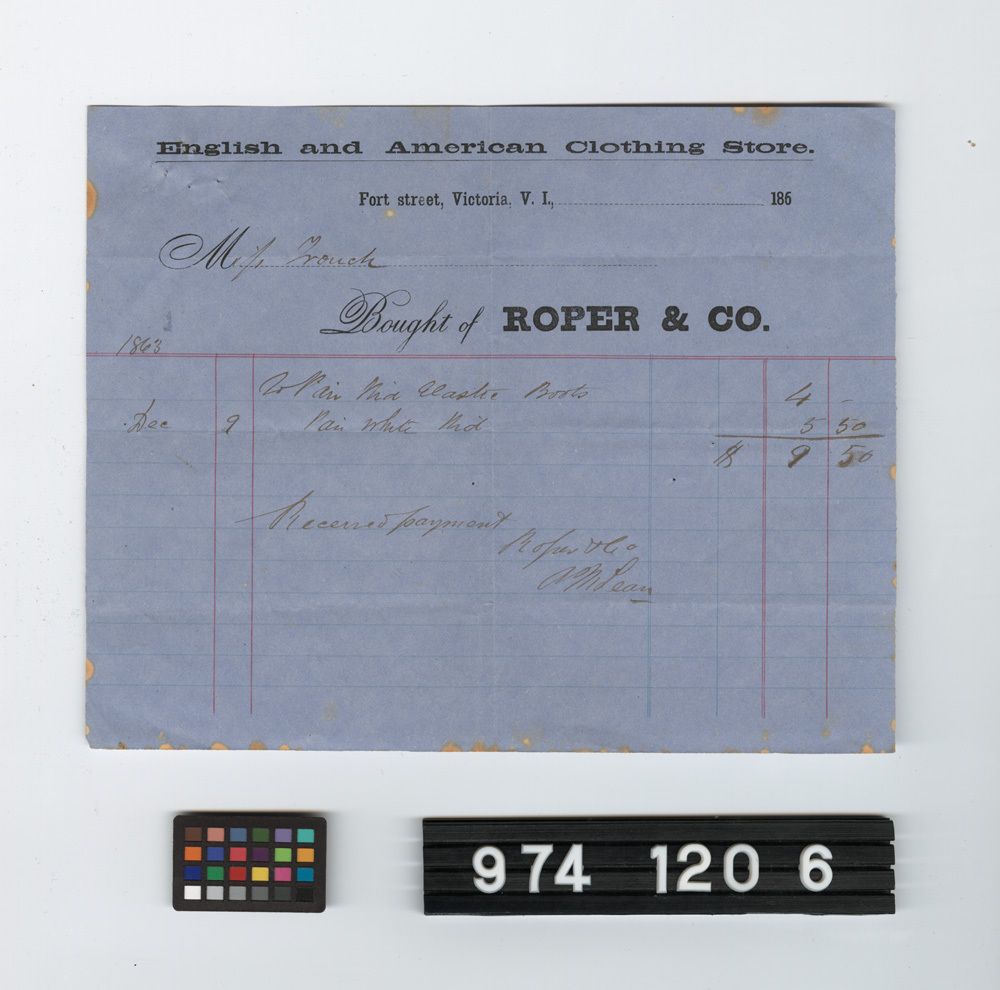 English and American Clothing Store.
Fort street, Victoria, V. I., 186
Miss Trouch
Bought of ROPER & CO.
1863
To Pair Kid Elastic Boots 4 -
Dec 9 Pair White Kid 5 50
$ 9 50
Received payment
Roper & Co
McLean
974 120 6